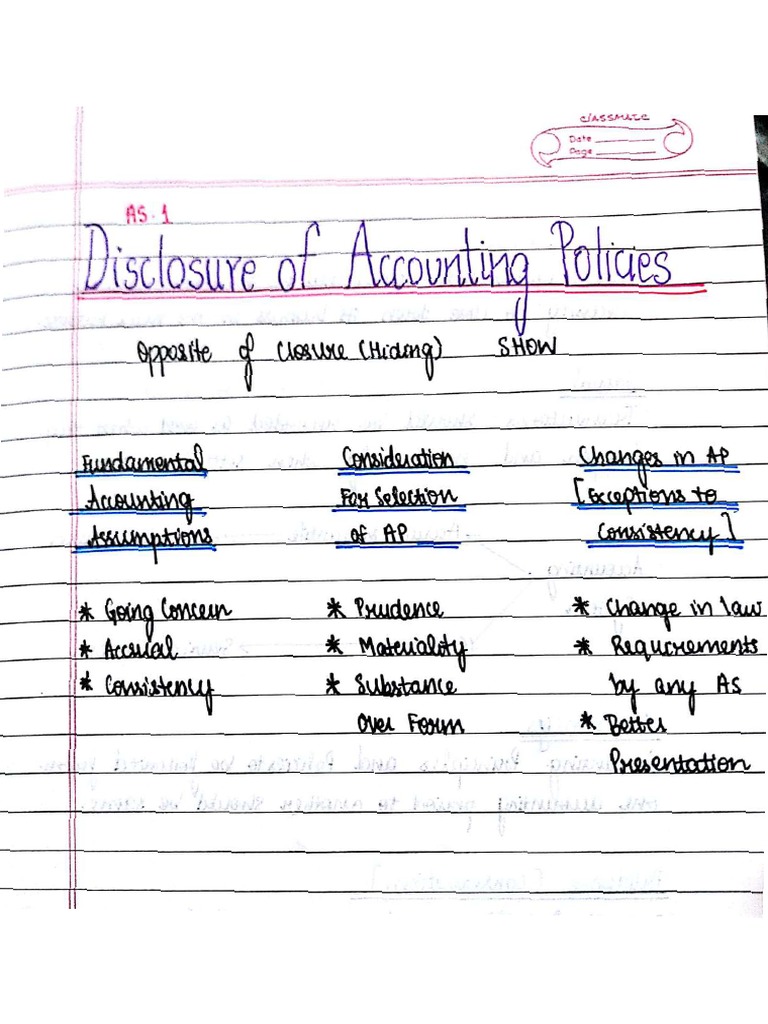 classmate
Date
Page
AS.1
Disclosure of Accounting Policies
Opposite of Closure (Hiding) SHOW
Fundamental
Accounting
Assumptions
Consideration
For Selection
of AP
Changes in AP
[Exceptions to
Consistency]
* Going Concern
* Accrual
* Consistency
* Prudence
* Materiality
* Substance
Over Form
* Change in law
* Requirements
by any AS
* Better
Presentation